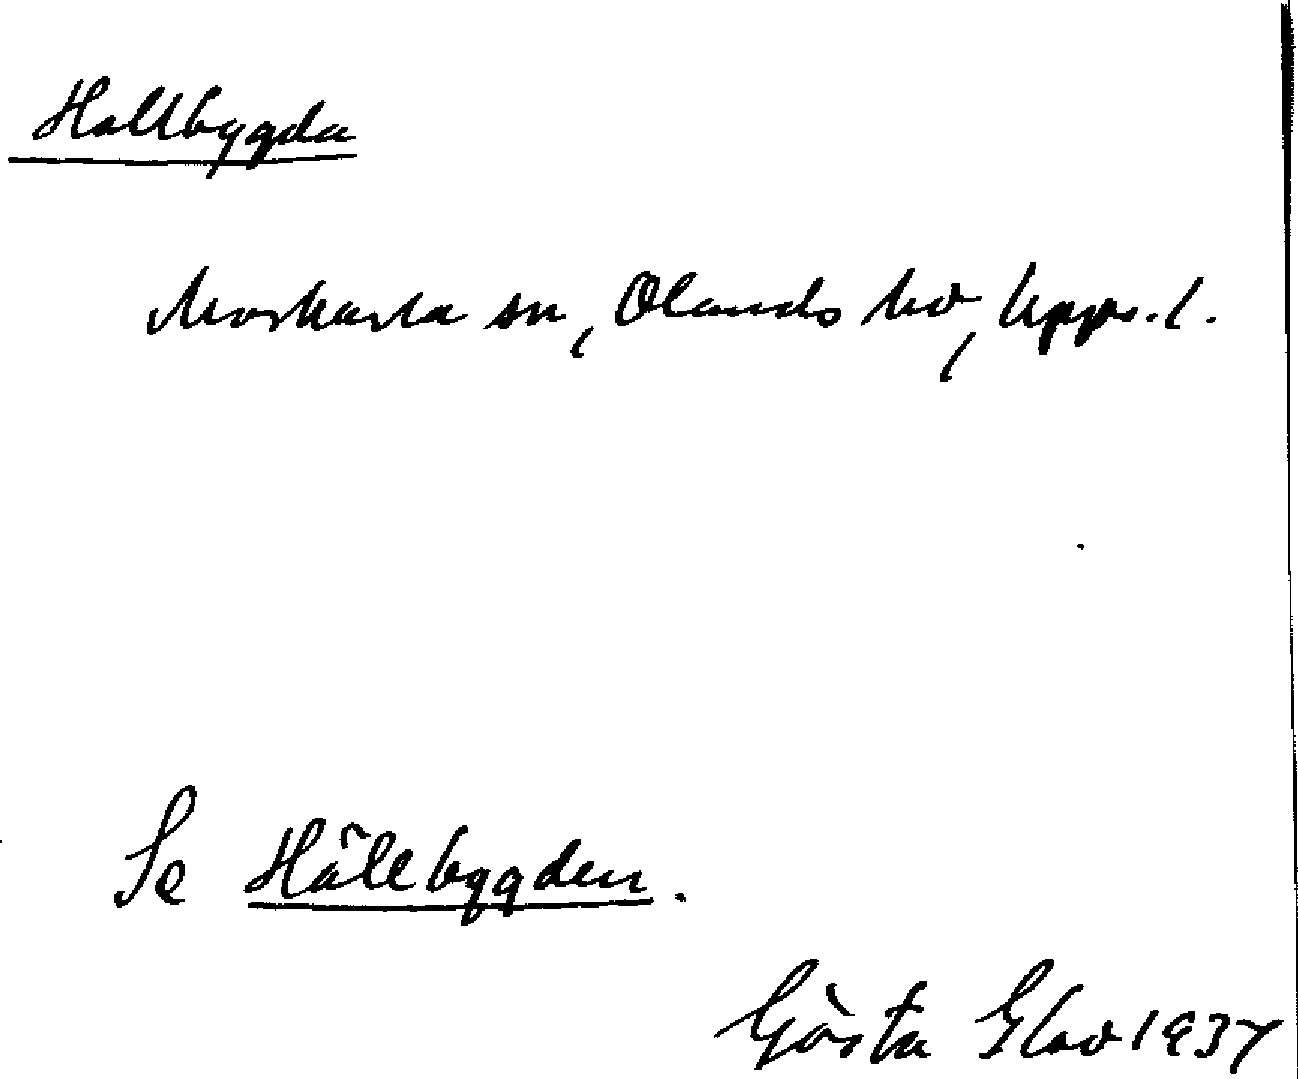 Hallbygda
Morkarla sn, Olands hd, Upps. l.
Se Hällbygden.
Gösta Elov 1937